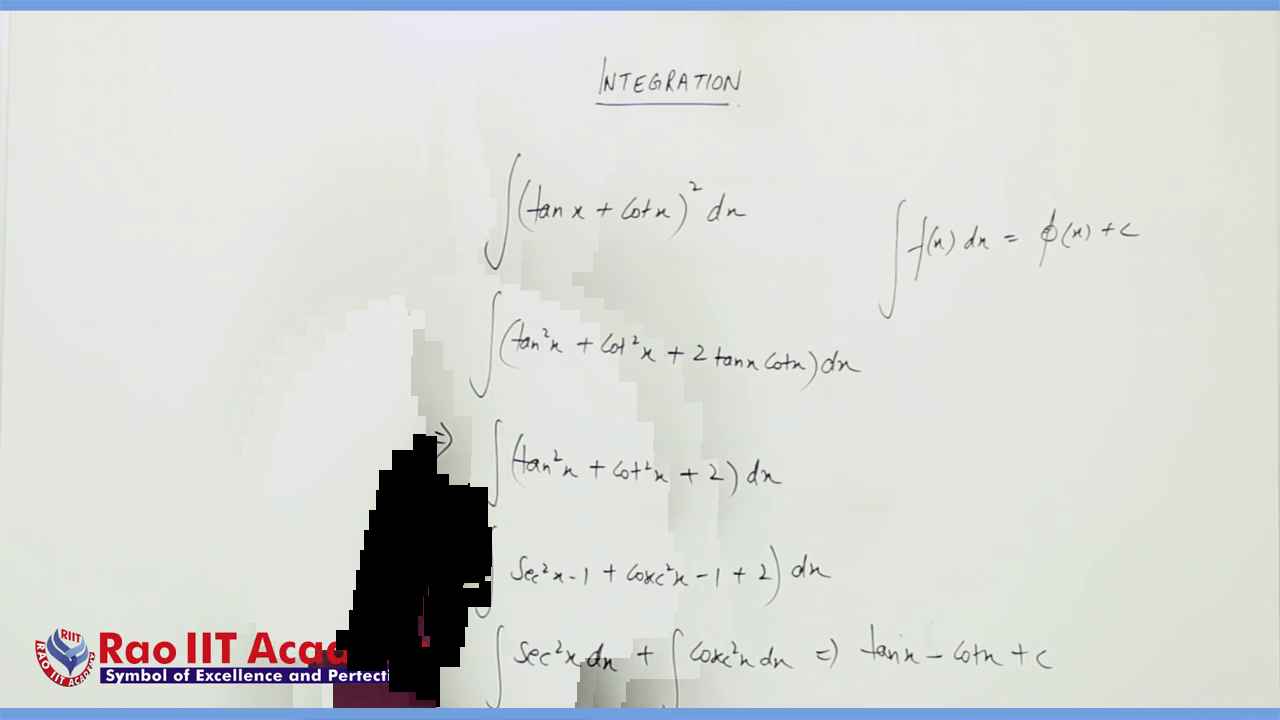 INTEGRATION
∫(tan x + cot x)² dx
∫f(x) dx = ϕ(x) + c
∫(tan²x + cot²x + 2 tanx cotx) dx
⇒ ∫(tan²x + cot²x + 2) dx
∫ sec²x - 1 + cosec²x - 1 + 2) dx
∫ sec²x dx + ∫ cosec²x dx ⇒ tanx - cotx + c
RIIT
RAO IIT ACADEMY
Rao IIT Acad
Symbol of Excellence and Perfecti